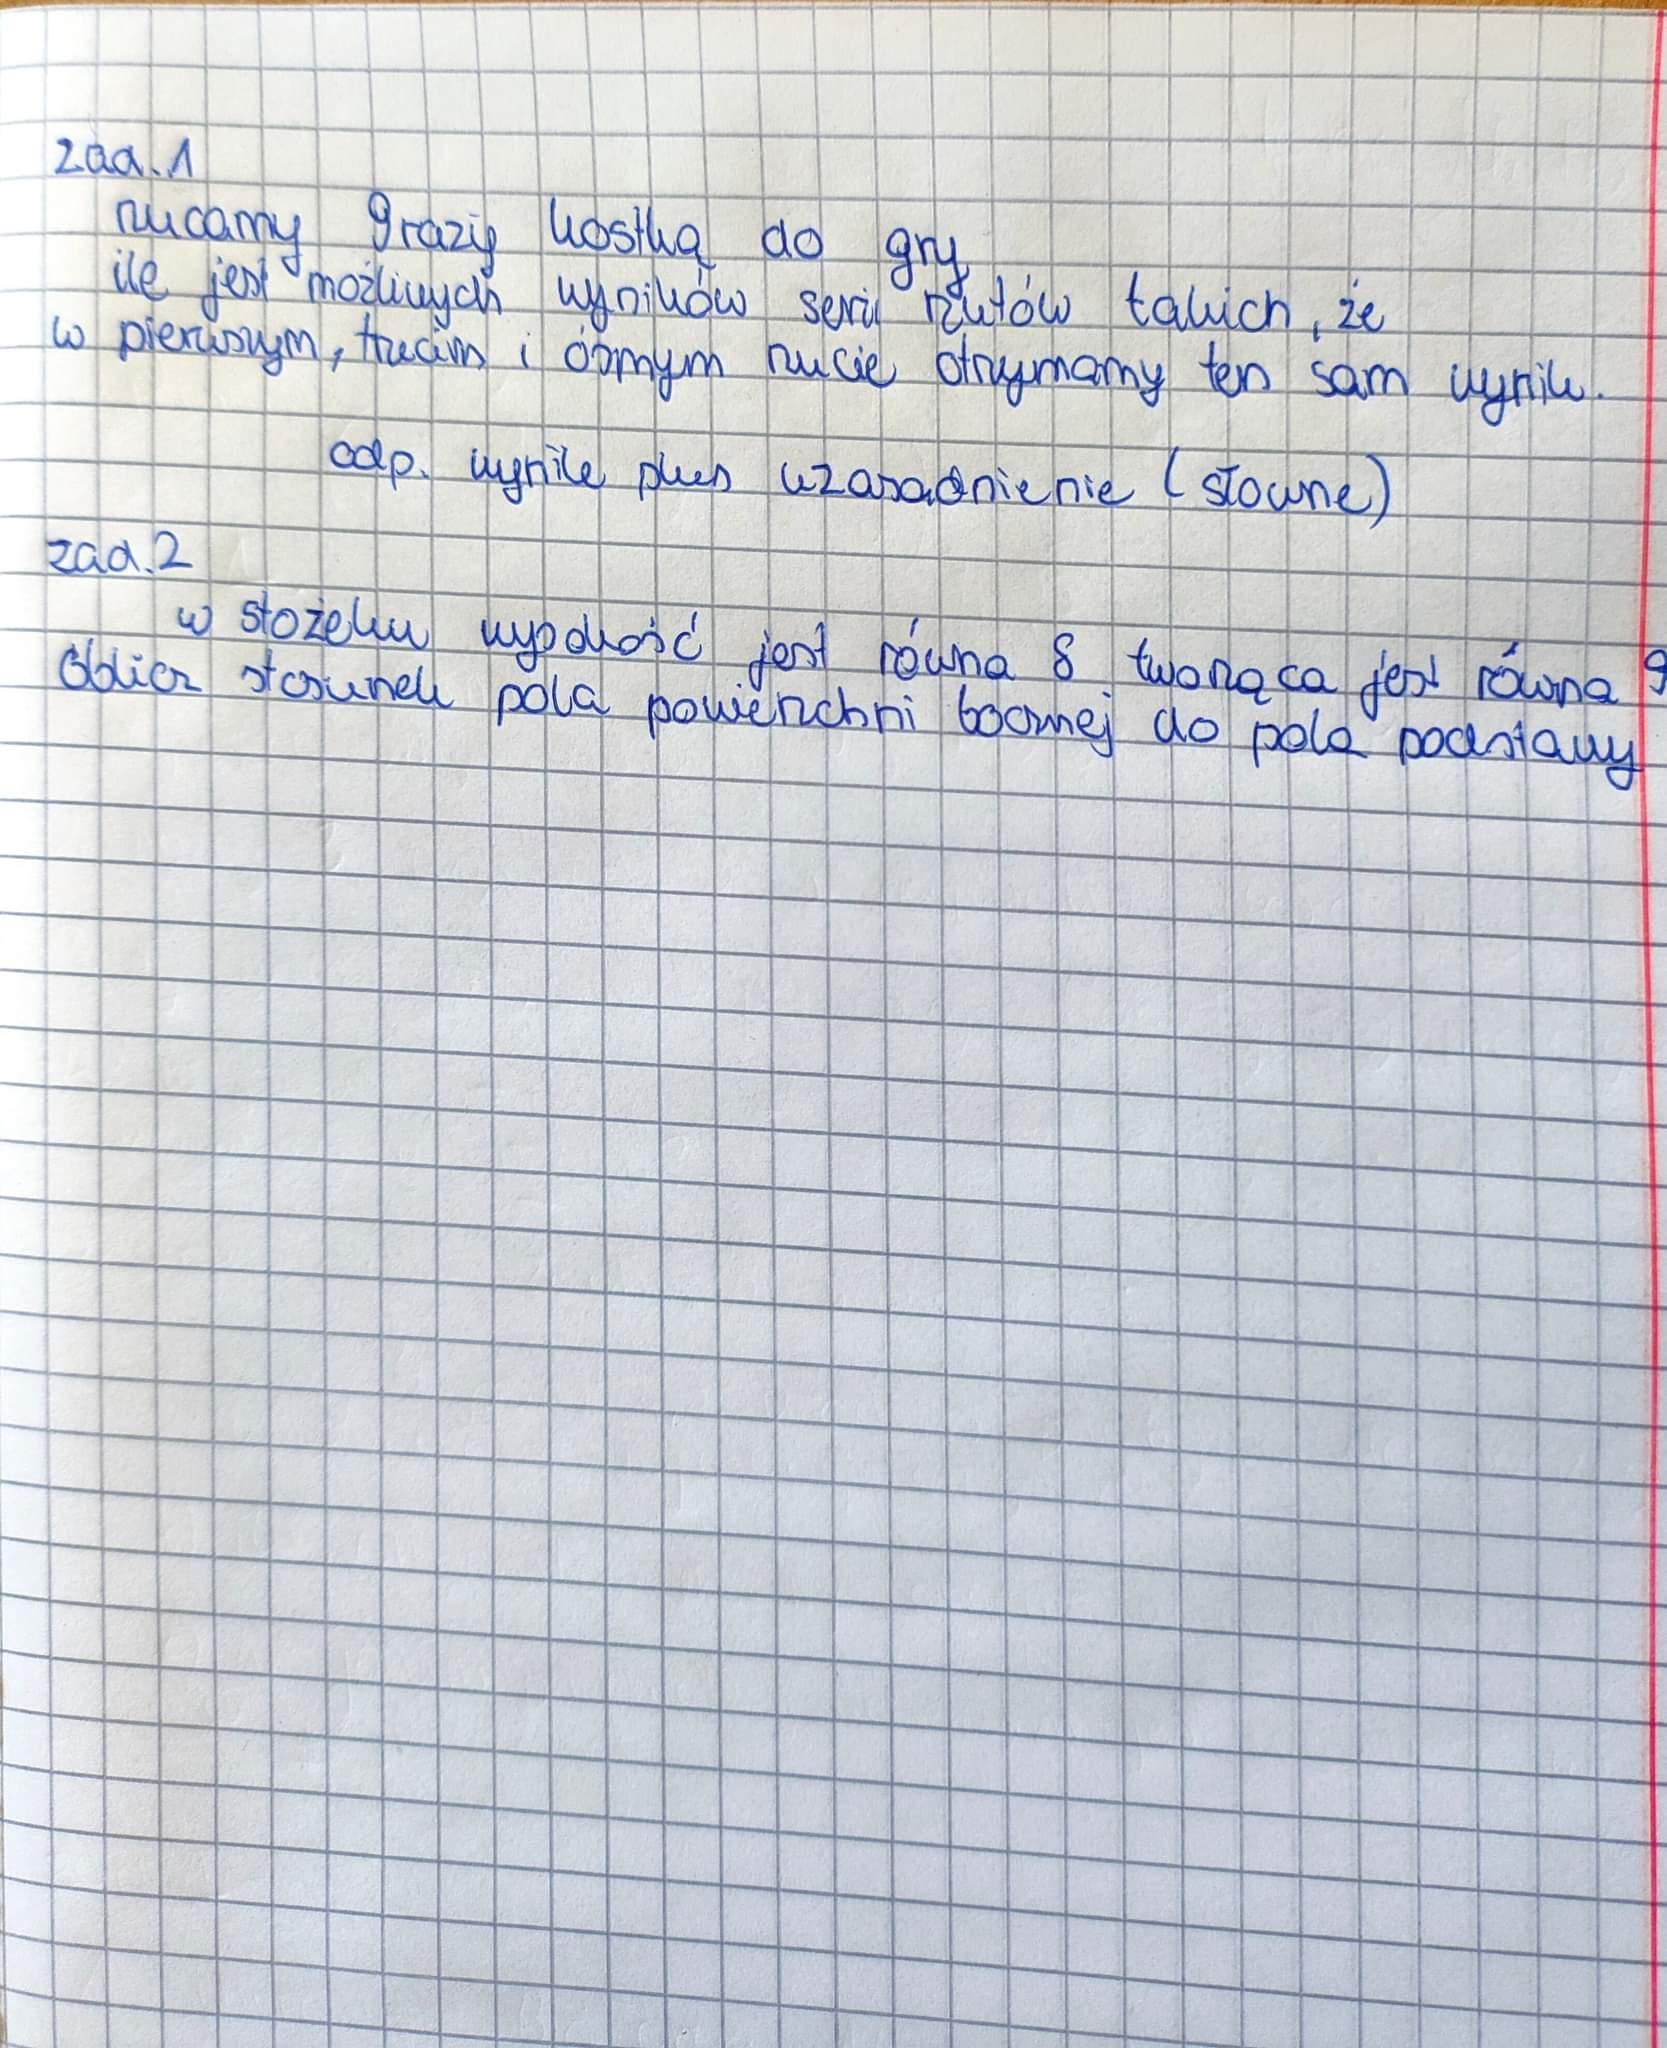 zad.1
rzucamy 9 razy kostką do gry
ile jest możliwych wyników serii rzutów takich, że
w pierwszym, trzecim i ósmym rzucie otrzymamy ten sam wynik.
odp. wynik plus uzasadnienie (słowne)
zad.2
w stożku wysokość jest równa 8 tworząca jest równa 9
Oblicz stosunek pola powierzchni bocznej do pola podstawy